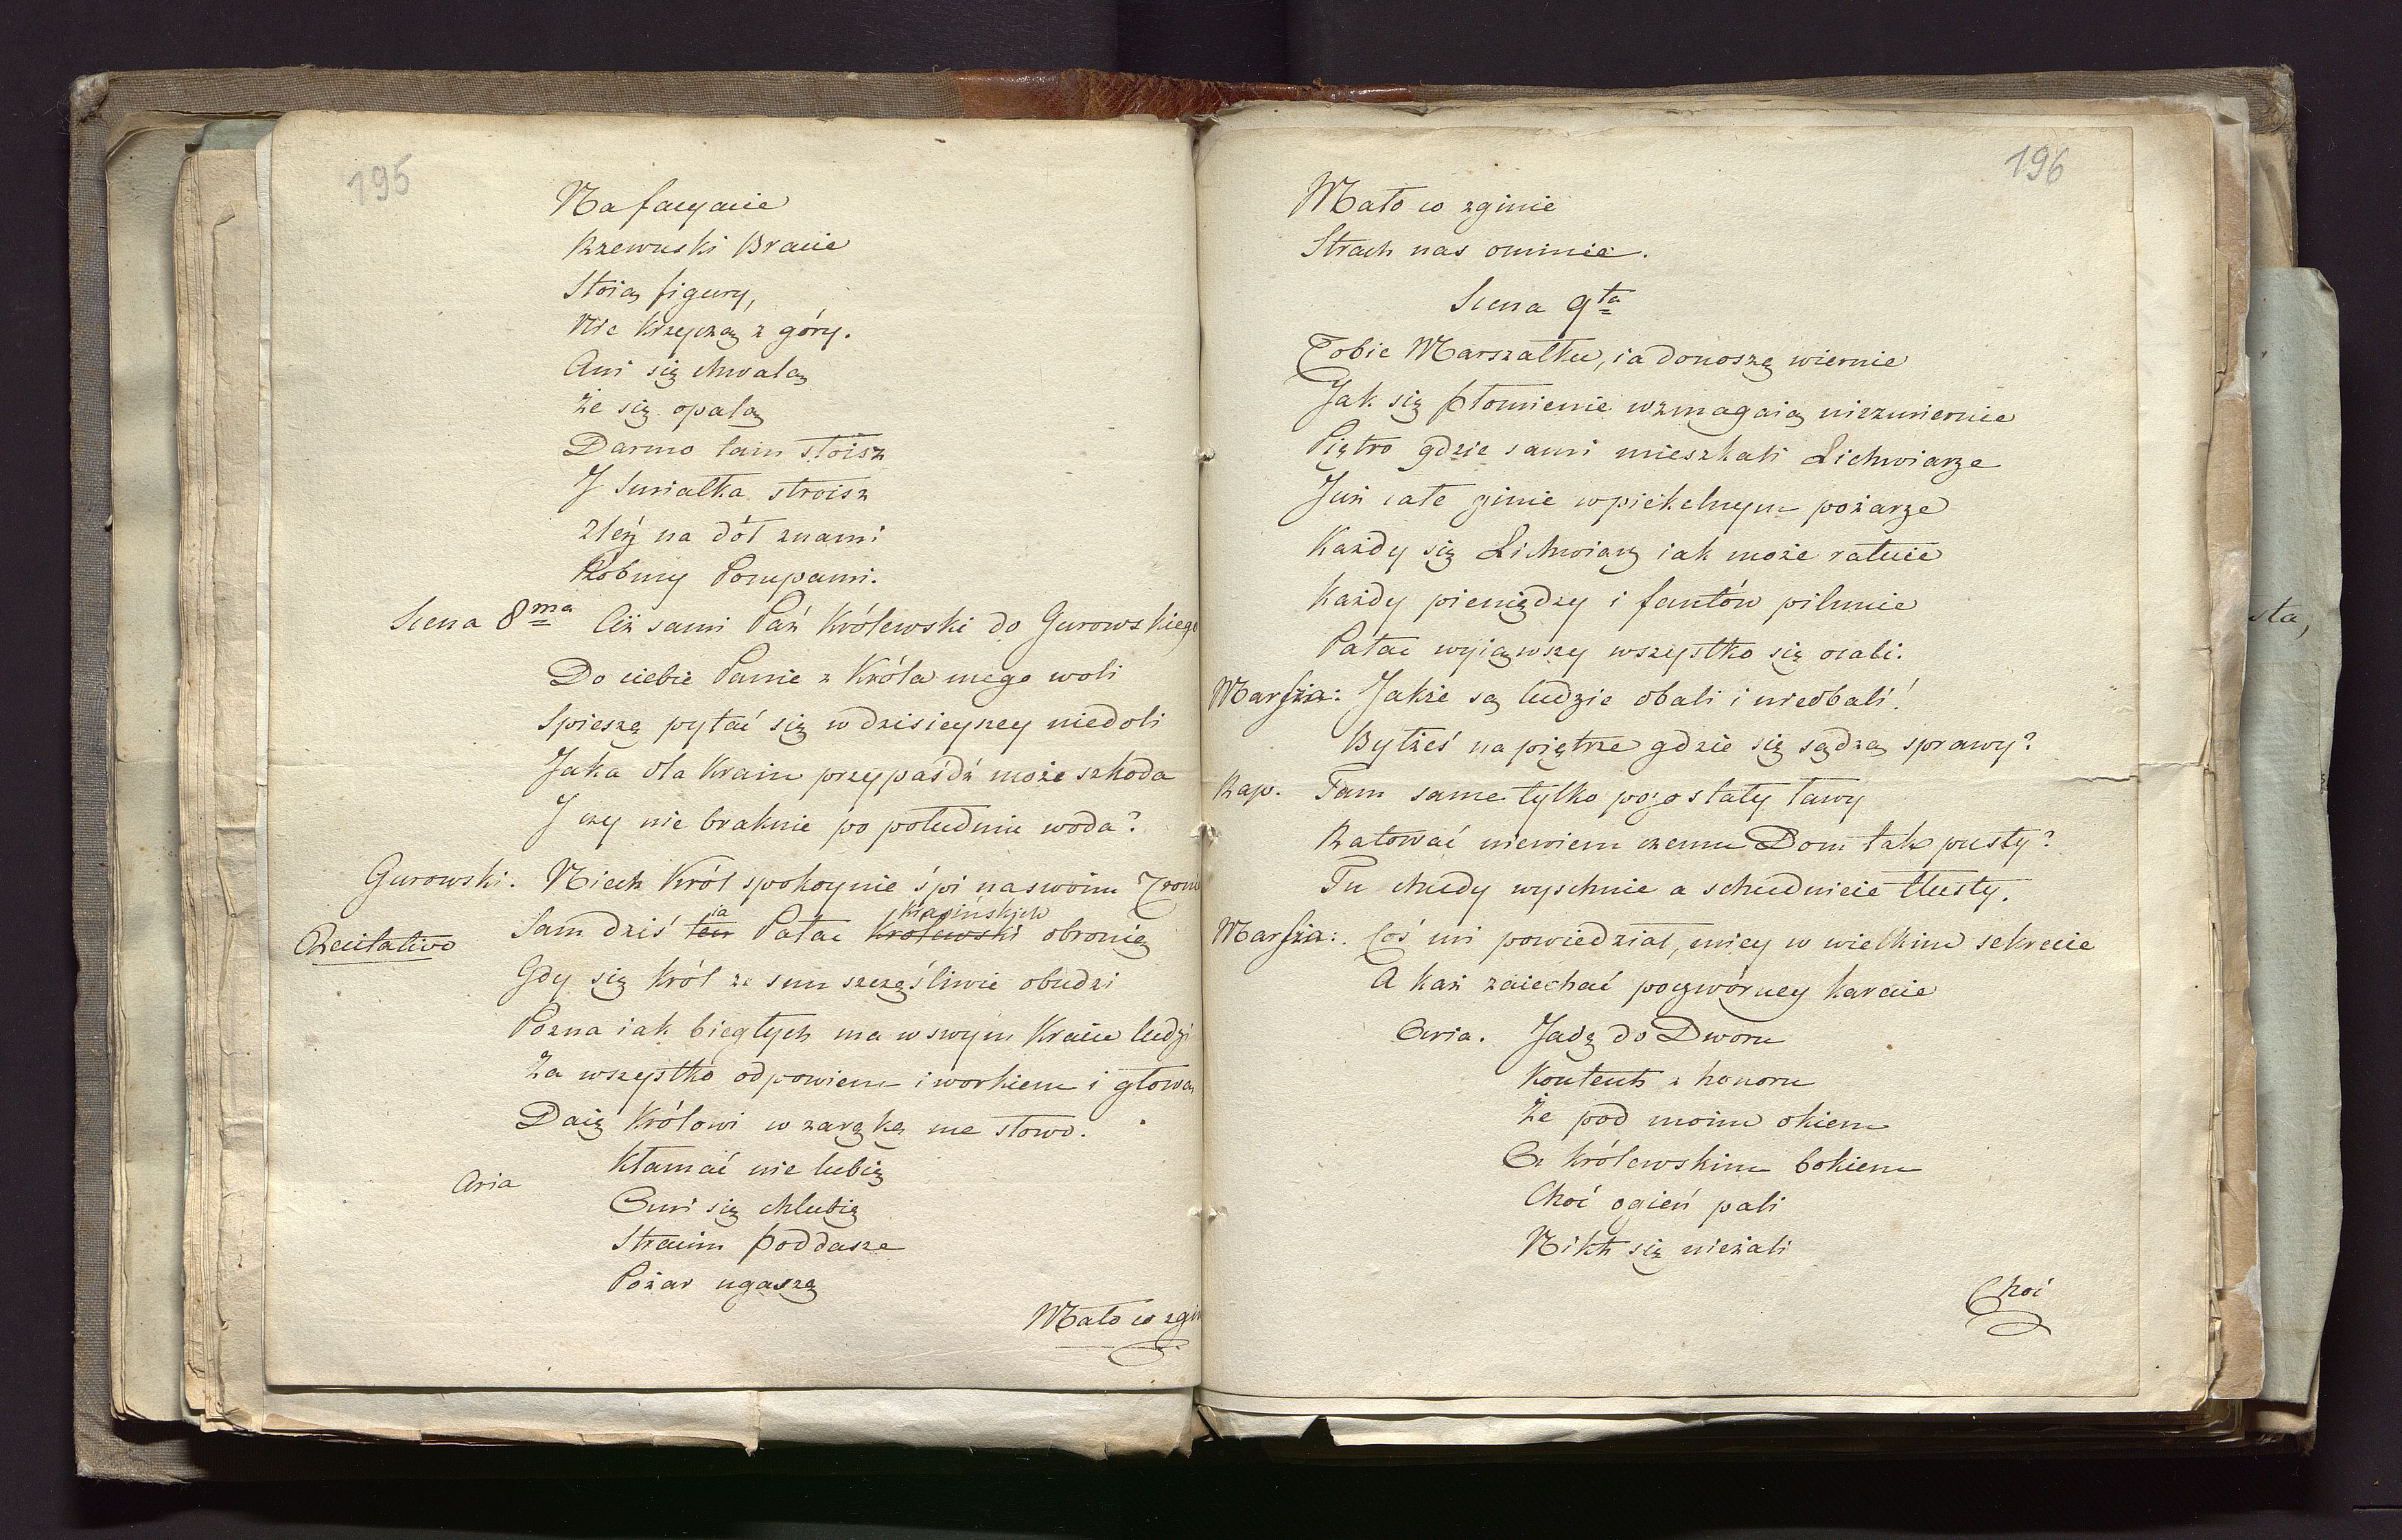 195
Na facyacie
Rzewuski Bracie
Stoią figury,
Nie krzyczą z góry.
Ani się chwalą
że się opalą
Darmo tam stoisz
J Smiałka stroisz
zleź na dół znami
Róbmy Pompami.
Scena 8ma Ciż sami Paź Królewski do Gurowskiego
Do ciebie Panie z Króla mego woli
Spieszę pytać się w dzisieyszey niedoli
Jaka dla Kraiu przypaśdź może szkoda
J czy nie braknie po południu woda?
Gurowski. Niech Król spokoynie śpi naswoim Troni
ia Krasińskich
Recitativo Sam dziś ten Pałac Królewski obronię
Gdy się Król ze snu szczęśliwie obudzi
Pozna iak biegłych ma w swym Kraiu ludzi
Za wszystko odpowiem i workiem i głową
Daię Królowi w zarękę me słowo.
Aria Kłamać nie lubię
Ani się chlubię
Stracim poddasze
Pożar ugaszę
Mało co zgin
196
Mało co zginie
Strach nas ominie.
Scena 9ta
Tobie Marszałku, ia donoszę wiernie
Jak się płomienie wzmagaią niezmiernie
Piętro gdzie sami mieszkali Lichwiarze
Już całe ginie w piekelnym pożarze
Każdy się Lichwiarz iak może ratuie
Każdy pieniędzy i fantów pilnuie
Pałac wyiąwszy wszystko się ocali.
Marsza: Jakże są ludzie dbali i niedbali!
Byłżeś na piętrze gdzie się sądzą sprawy?
Rap. Tam same tylko pozostały ławy
Ratować niewiem czemu Dom tak pusty?
Tu chudy wyschnie a schudniecie tłusty.
Marsza:. Coś mi powiedział, miey w wielkim sekrecie
A każ zaiechać poczwórney karecie
Aria. Jadę do Dworu
Kontent z honoru
Że pod moim okiem
A królewskim bokiem
Choć ogień pali
Nikt się nieżali
Choć
sta,